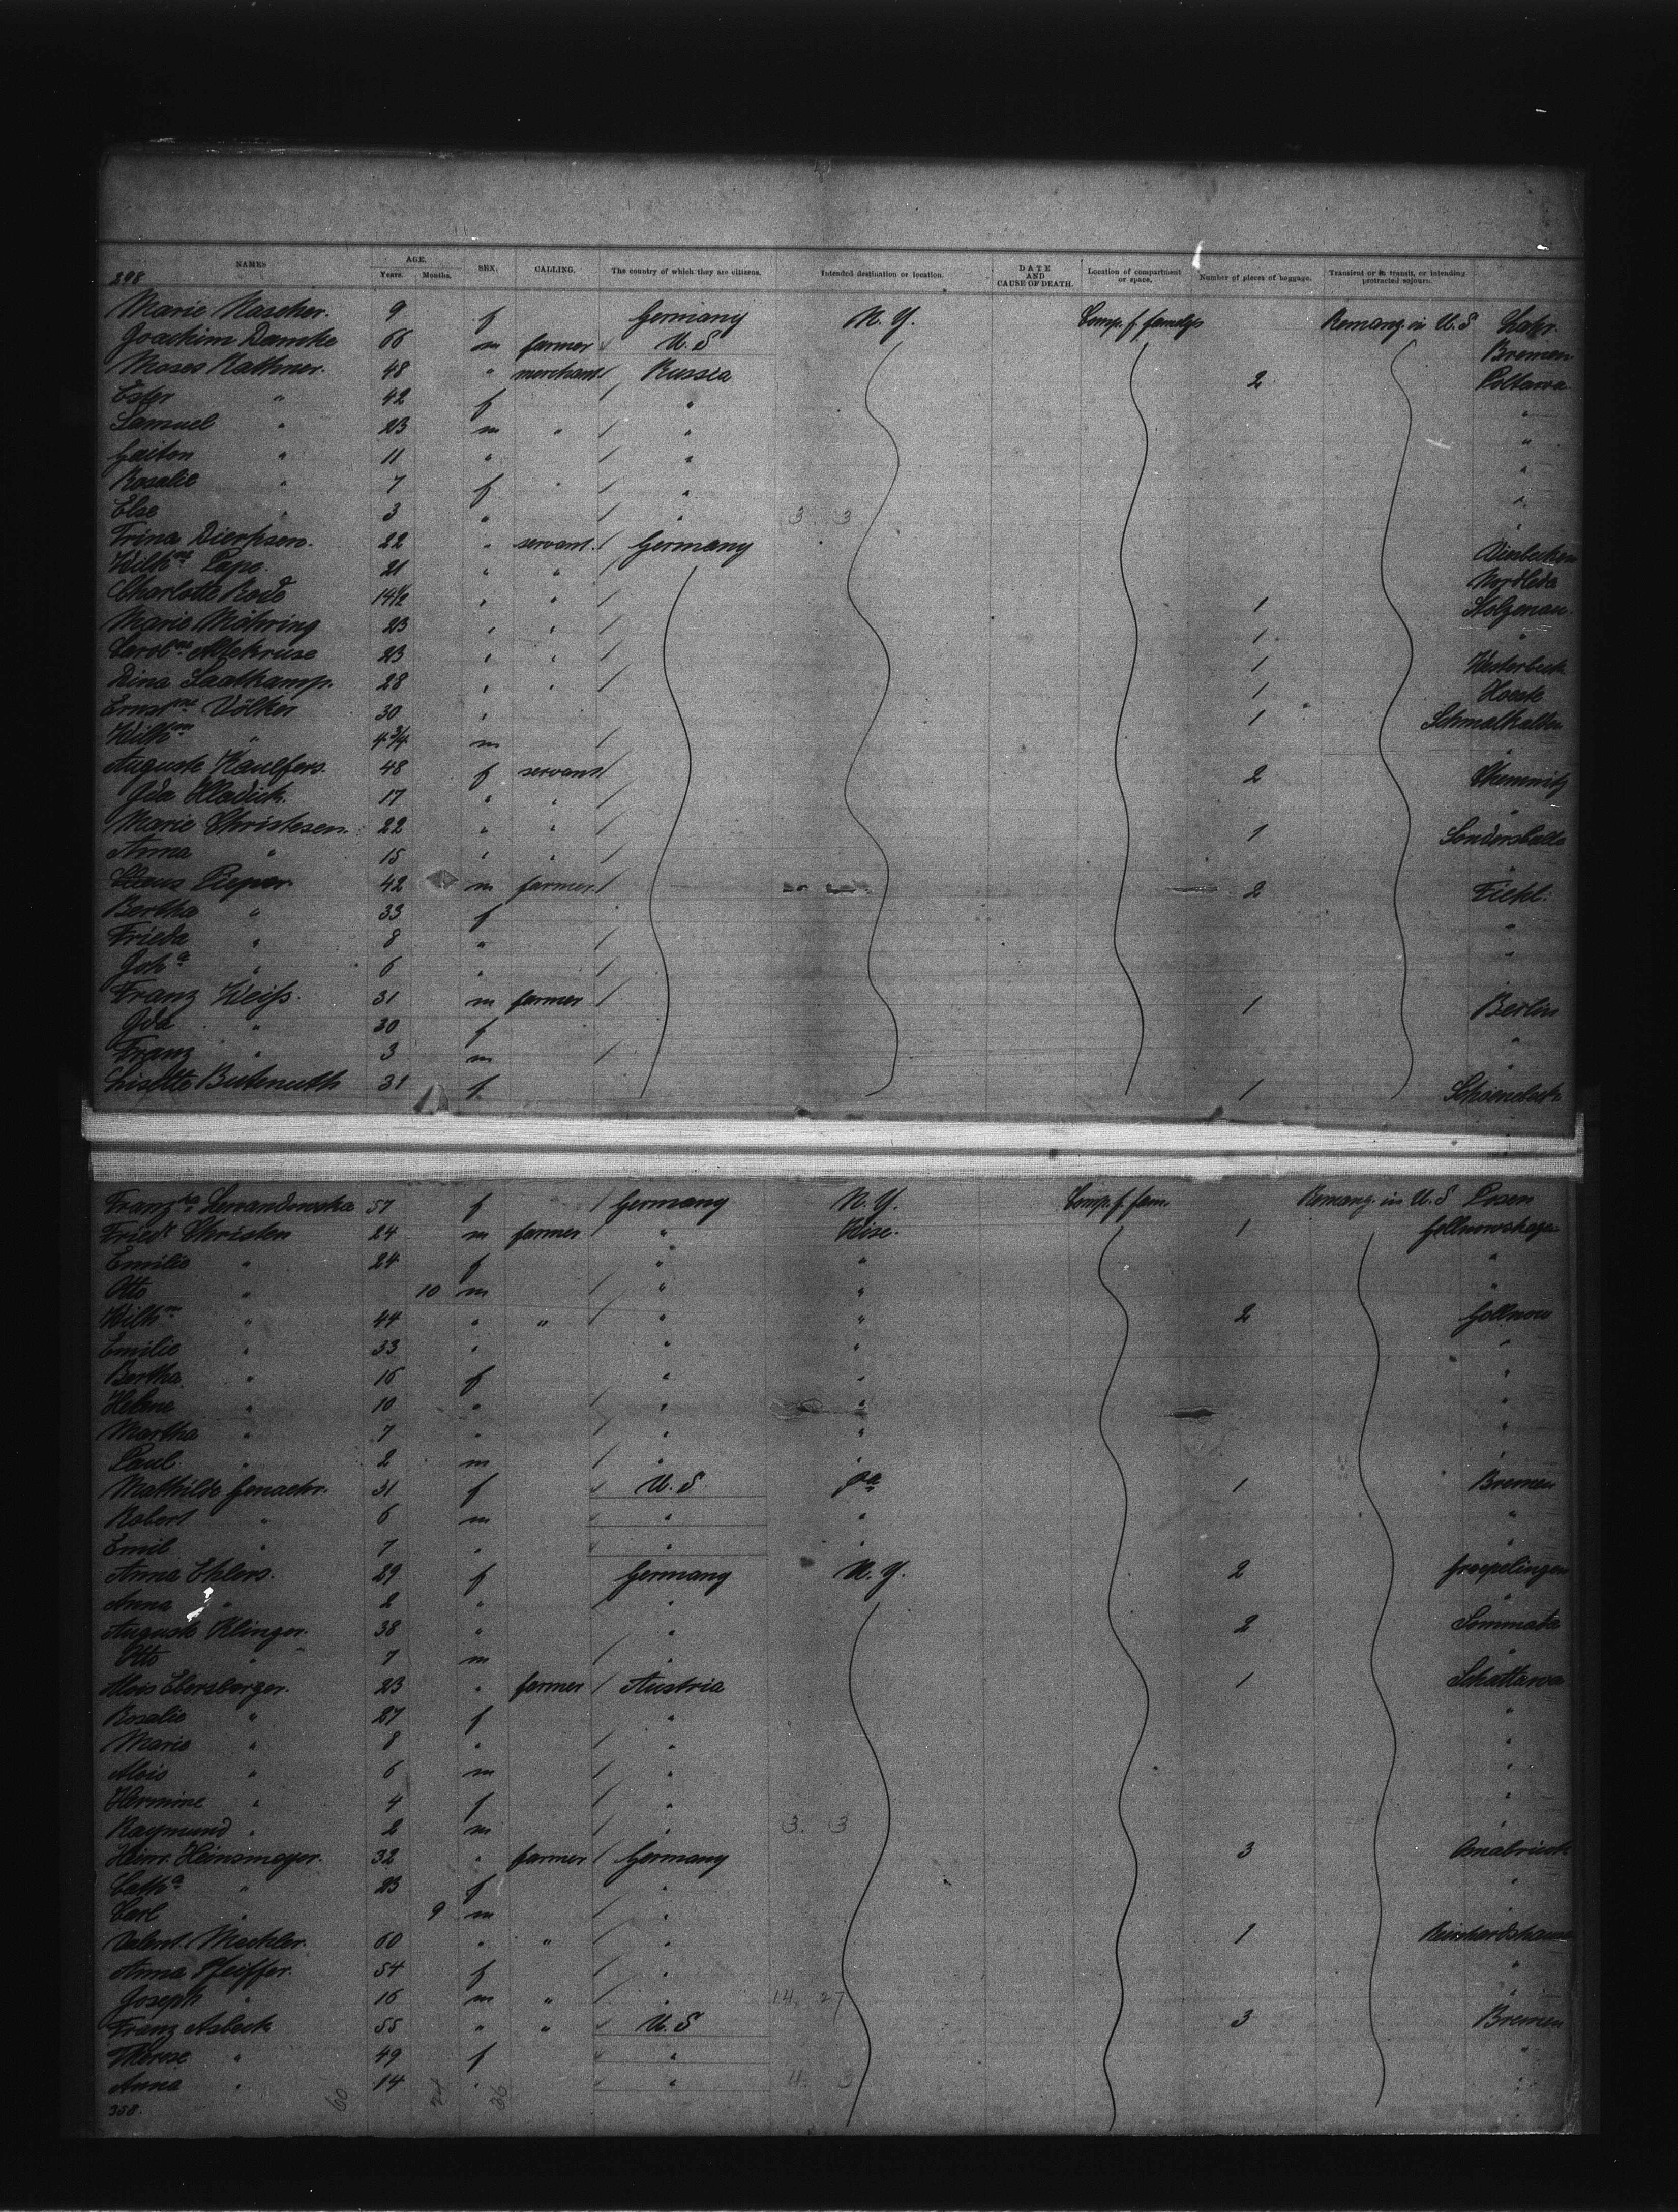 NAMES AGE. SEX. CALLING. The country of which they are citizens. Intended destination or location. DATE AND CAUSE OF DEATH. Location of compartment or space. Number of pieces of baggage. Transient or in transit, or intending protracted sojourn.
298 Years. Months.
Marie Nascher. 9 f Germany N.Y. Comp. f. familys Remang in U.S Lahr.
Joachim Damke 66 m farmer U.S Bremen
Moses Rathner. 48 " merchant Russia 2 Poltawa
Ester " 42 f " "
Samuel " 23 m " " "
" 11 " " "
Rosalie " 7 f " " "
Else " 3 " " 3 3 "
Trina Dierksen. 22 " servant Germany
Wilhne Pape. 21 " "
Charlotte Rode 14 1/2 " " 1 Stolzenau.
Marie Möhring 23 " " 1 "
23 " " 1 Westerbeck
Dina Saatkamp. 28 " " 1
Ernstne Völker 30 " 1 Schmalkalden
Wilhm " 4 3/4 m "
Auguste Kaulfers. 48 f servant 2 Chemnitz
Ida Hladick. 17 " " "
Marie Christesen. 22 " " 1
Anna " 15 " " "
Claus Pieper. 42 m farmer 2 Fiehl.
Bertha " 33 f "
Frieda " 8 " "
Joha " 6 " "
Franz Weiß. 31 m farmer 1 Berlin
Ida " 30 f "
Franz " 3 m "
Lisette Butenuth 31 f 1 Schoenebeck
Franzka Lewandowska 57 f Germany N.Y. Comp. f. fam. Remang. in U.S Posen
Friedr Christen 24 m farmer " Wisc. 1 Gollnowshagen
Emilie " 24 f " " "
Otto " 10 m " " "
Wilhm " 44 " " " " 2 Gollnow
Emilie " 33 " " " "
Bertha " 16 f " " "
Helene " 10 " " " "
Martha " 7 " " " "
Paul " 2 m " " "
Mathilde 31 f U.S. Pa 1 Bremen
Robert " 6 m " " "
Emil " 7 " " " "
Anna Ehlers. 29 f Germany N.Y. 2 Groepelingen
Anna " 2 " " "
Auguste Klinger. 38 " " 2
Otto " 7 m " "
Alois Ebersberger. 23 " farmer Austria 1 Schattawa
Rosalie " 27 f " "
Marie " 8 " " "
Alois " 6 m " "
Hermine " 4 f " "
Raymund " 2 m " 3. 3 "
Heinr. Heinsmeyer. 32 " farmer Germany 3 Osnabrück
Catha " 23 f " "
Carl " 9 m " "
Valent. Mechler. 60 " " " 1
Anna Pfeiffer. 54 f " "
Joseph " 16 m " " 14. 27 "
Franz Asbeck 55 " " U.S 3 Bremen
Therese " 49 f " "
Anna " 14 " " 11. 3 "
358. 60 24 36